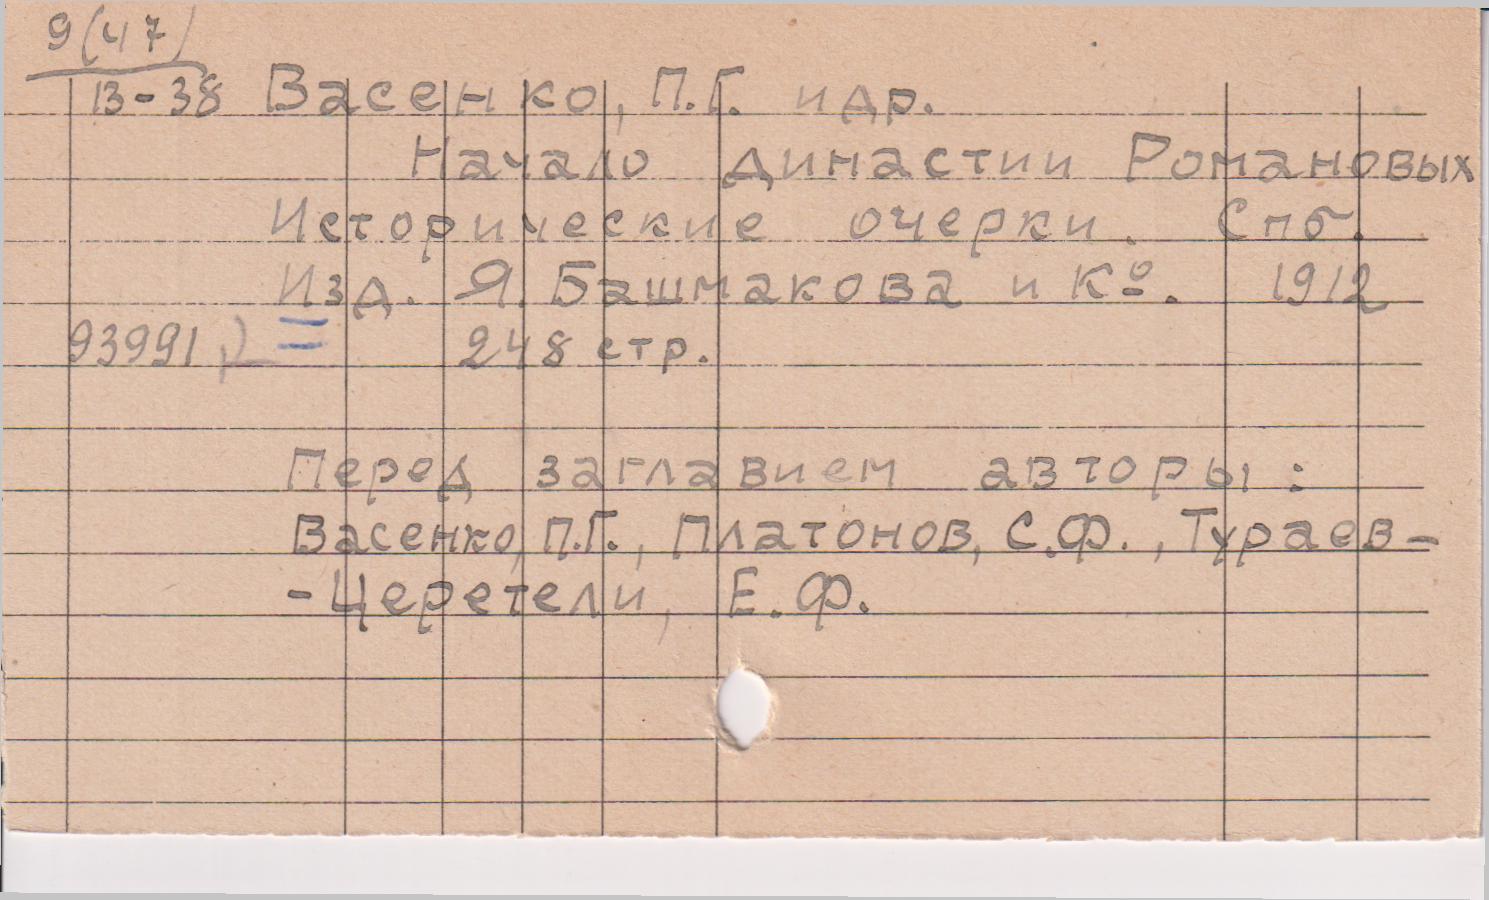 9(47)
В-38 Васенко, П.Г. и др.
Начало династии Романовых
Исторические очерки. Спб.
Изд. Я. Башмакова и Кº. 1912
93991 248 стр.
Перед заглавием авторы:
Васенко, П.Г., Платонов, С.Ф., Тураев-
-Церетели, Е.Ф.